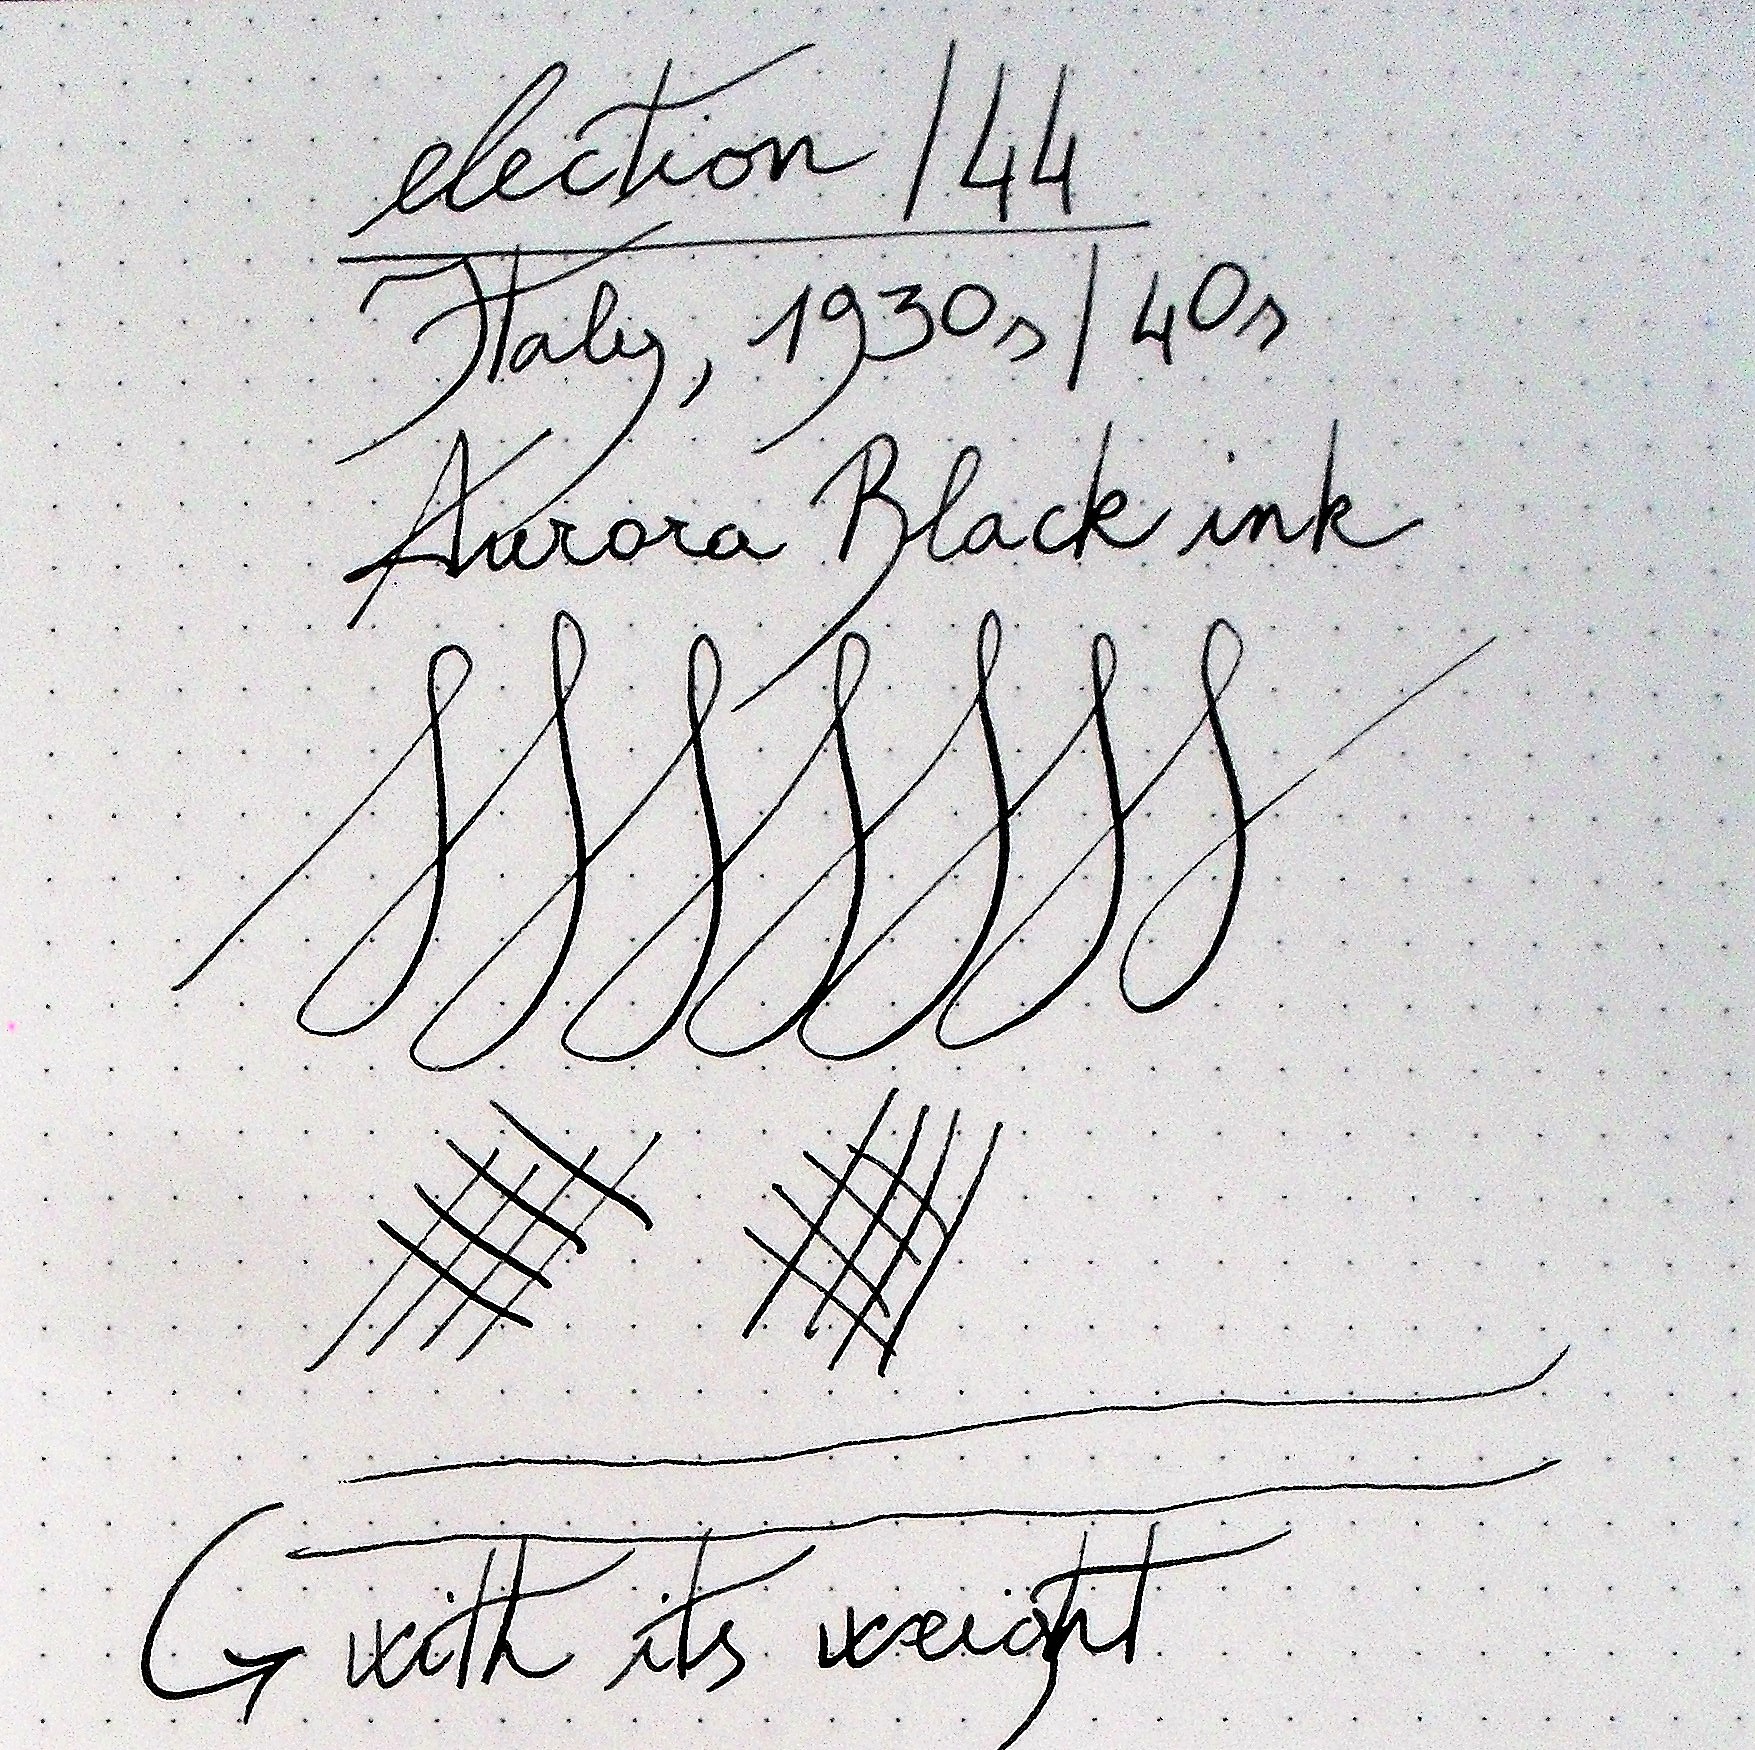 election /44
Italy, 1930s/40s
Aurora Black ink
with its weight